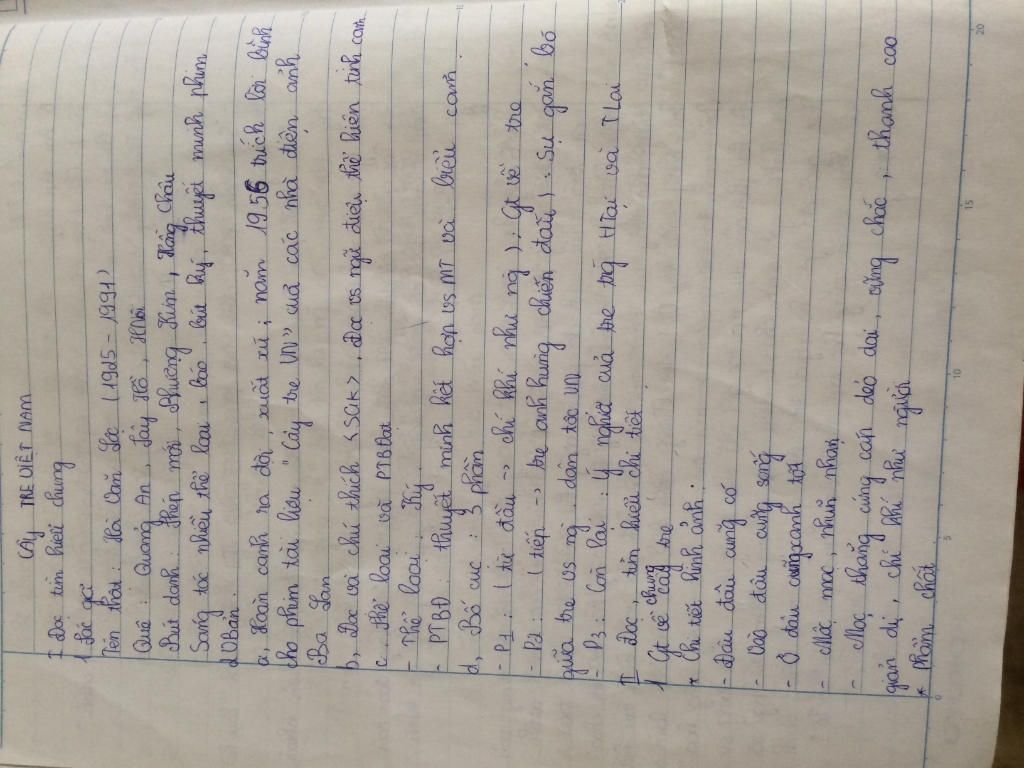 CÂY TRE VIỆT NAM
I Đọc tìm hiểu chung
1 Tác giả
Tên thật: Hà Văn Lộc (1925-1991)
Quê: Quảng An, Tây Hồ, HNội
Bút danh: Thép mới, Phượng Kim, Hồng Châu
Sáng tác nhiều thể loại, báo, bút ký, thuyết minh phim
2 VBản
a, Hoàn cảnh ra đời, xuất xứ; năm 1956 trích lời bình
cho phim tài liệu "Cây tre VN" của các nhà điện ảnh
Ba Lan
b, Đọc và chú thích <SGK>. Đọc vs ngữ điệu thể hiện tình cảm
c, Thể loại và PTBĐạt
- Thể loại: Ký
- PTBĐ: thuyết minh kết hợp vs MT và biểu cảm
d, Bố cục: 3 phần
- P1: (từ đầu → chí khí như ng): Gt về tre
- P2: (tiếp → tre anh hùng chiến đấu): Sự gắn bó
giữa tre vs ng dân tộc VN
- P3: Còn lại: Ý nghĩa của tre trg HTại và TLai
II Đọc, tìm hiểu chi tiết
1 Gt về chung cây tre
* Chi tiết hình ảnh.
- Đâu đâu cũng có
- Vào đâu cũng sống
- Ở đâu cũng xanh tốt
- Mộc mạc, nhũn nhặn
- Mọc thẳng cứng cáp dẻo dai, vững chắc, thanh cao
giản dị, chí khí như người
* Phẩm chất
0
5
10
15
20